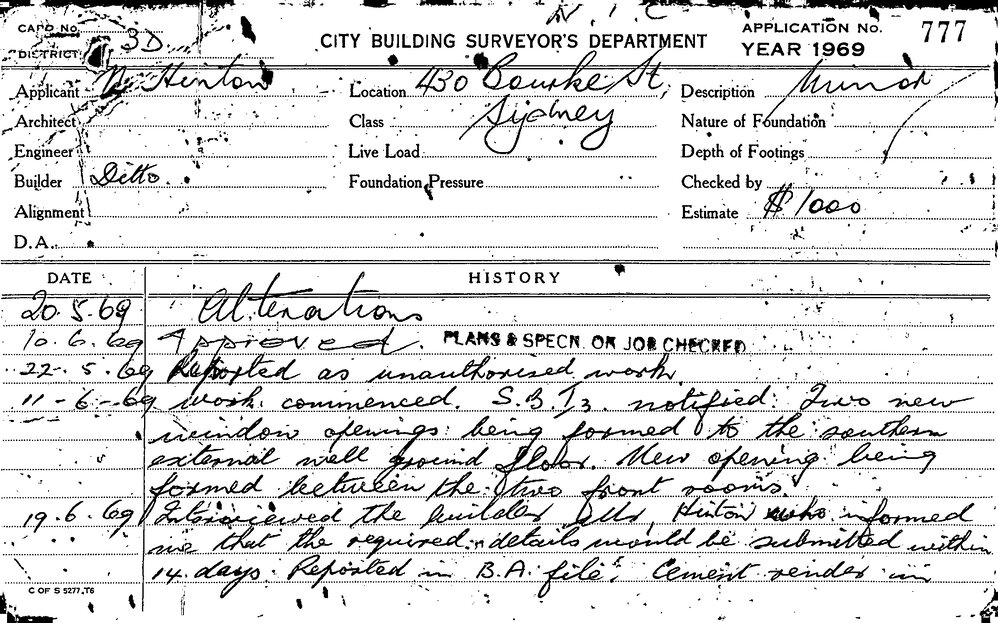 N.I.C
CARD No. 3D
DISTRICT
CITY BUILDING SURVEYOR'S DEPARTMENT
APPLICATION No. 777
YEAR 1969
Applicant N Hinton Location 430 Bourke St, Description Minor
Architect Class Sydney Nature of Foundation
Engineer Live Load Depth of Footings
Builder Ditto. Foundation Pressure Checked by
Alignment Estimate $1000
D.A.
DATE HISTORY
20.5.69 Alterations
10.6.69 Approved. PLANS & SPECN. ON JOB CHECKED
22.5.69 Reported as unauthorised work.
11-6-69 Work commenced. S.B.I3. notified. Two new
window openings being formed to the southern
external wall ground floor. New opening being
formed between the two front rooms.
19.6.69 Interviewed the builder Mr. Hinton who informed
me that the required details would be submitted within
14 days. Reported in B.A. file. Cement render in
C OF S 5277.T6